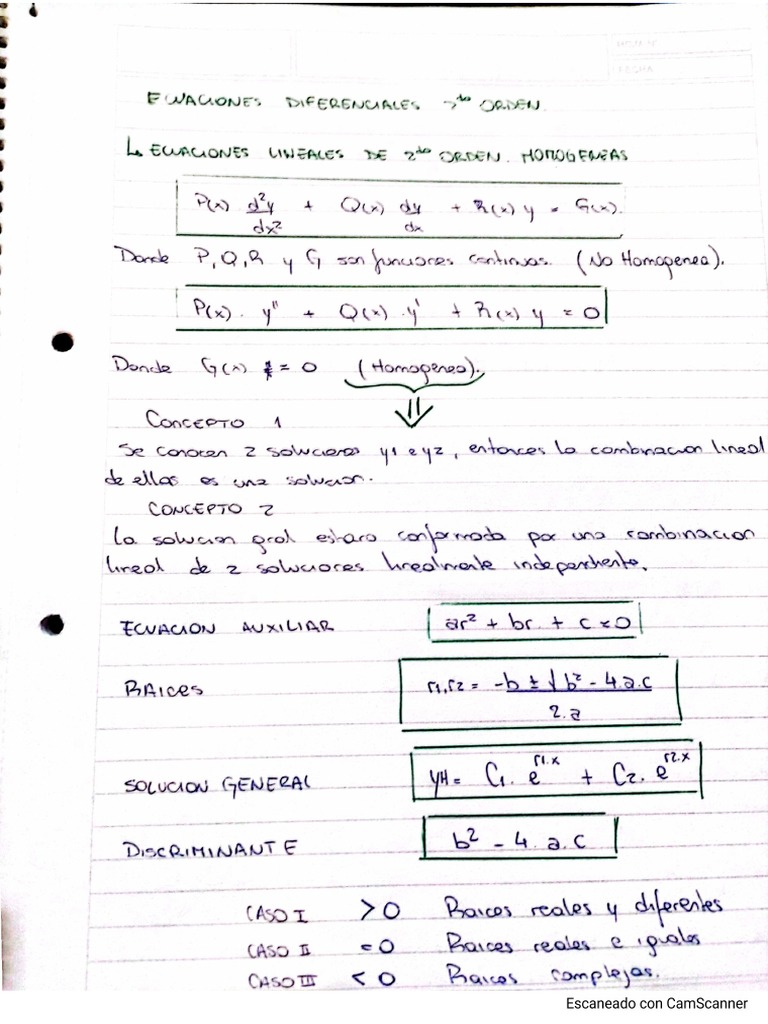 FECHA
ECUACIONES DIFERENCIALES 2do ORDEN
↳ ECUACIONES LINEALES DE 2do ORDEN. HOMOGENEAS
P(x) d²y/dx² + Q(x) dy/dx + R(x) y = G(x).
Donde P, Q, R y G son funciones continuas. (No Homogenea).
P(x) . y'' + Q(x) . y' + R(x) y = 0
Donde G(x) = 0 (Homogenea).
⇓
CONCEPTO 1
Se conocen 2 soluciones y1 e y2, entonces la combinacion lineal
de ellas es una solucion.
CONCEPTO 2
La solucion gral estara conformada por una combinacion
lineal de 2 soluciones linealmente independiente.
ECUACION AUXILIAR ar² + br + c = 0
RAICES r1, r2 = -b ± √b² - 4.a.c / 2.a
SOLUCION GENERAL yH = C1. e^r1.x + C2. e^r2.x
DISCRIMINANTE b² - 4.a.c
CASO I > 0 Raices reales y diferentes
CASO II = 0 Raices reales e iguales
CASO III < 0 Raices complejas.
Escaneado con CamScanner